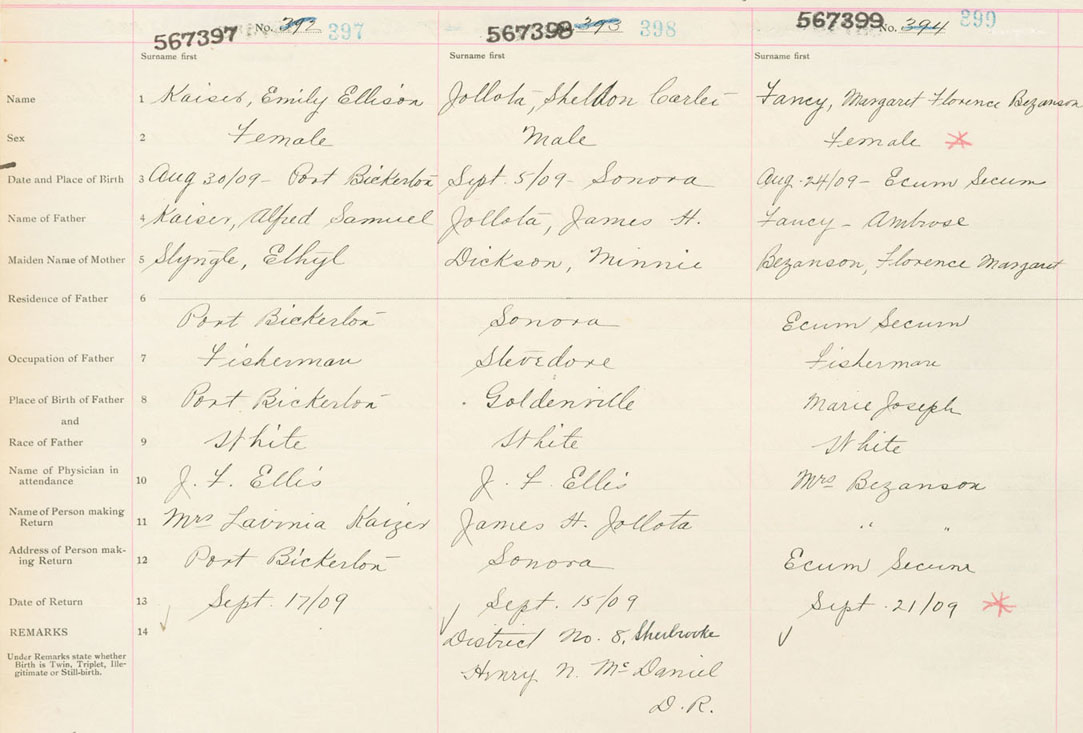 567397 No. 392 397 567398 393 398 567399 No. 394 399
Surname first Surname first Surname first
Name 1 Kaiser, Emily Ellison Jollota, Sheldon Carlei Fancy, Margaret Florence Bezanson
Sex 2 Female Male Female *
Date and Place of Birth 3 Aug 30/09 - Port Bickerton Sept. 5/09 - Sonora Aug. 24/09 - Ecum Secum
Name of Father 4 Kaiser, Alfred Samuel Jollota, James H. Fancy - Ambrose
Maiden Name of Mother 5 Slyngle, Ethyl Dickson, Minnie Bezanson, Florence Margaret
Residence of Father 6
Port Bickerton Sonora Ecum Secum
Occupation of Father 7 Fisherman Stevedore Fisherman
Place of Birth of Father 8 Port Bickerton Goldenville Marie Joseph
and
Race of Father 9 White White White
Name of Physician in
attendance 10 J. F. Ellis J. F. Ellis Mrs Bezanson
Name of Person making
Return 11 Mrs Lavinia Kaizer James H. Jollota " "
Address of Person mak-
ing Return 12 Port Bickerton Sonora Ecum Secum
Date of Return 13 Sept. 17/09 Sept. 15/09 Sept. 21/09 *
REMARKS 14 District No. 8, Sherbrooke
Under Remarks state whether
Birth is Twin, Triplet, Ille-
gitimate or Still-birth.
Henry N. McDaniel
D. R.